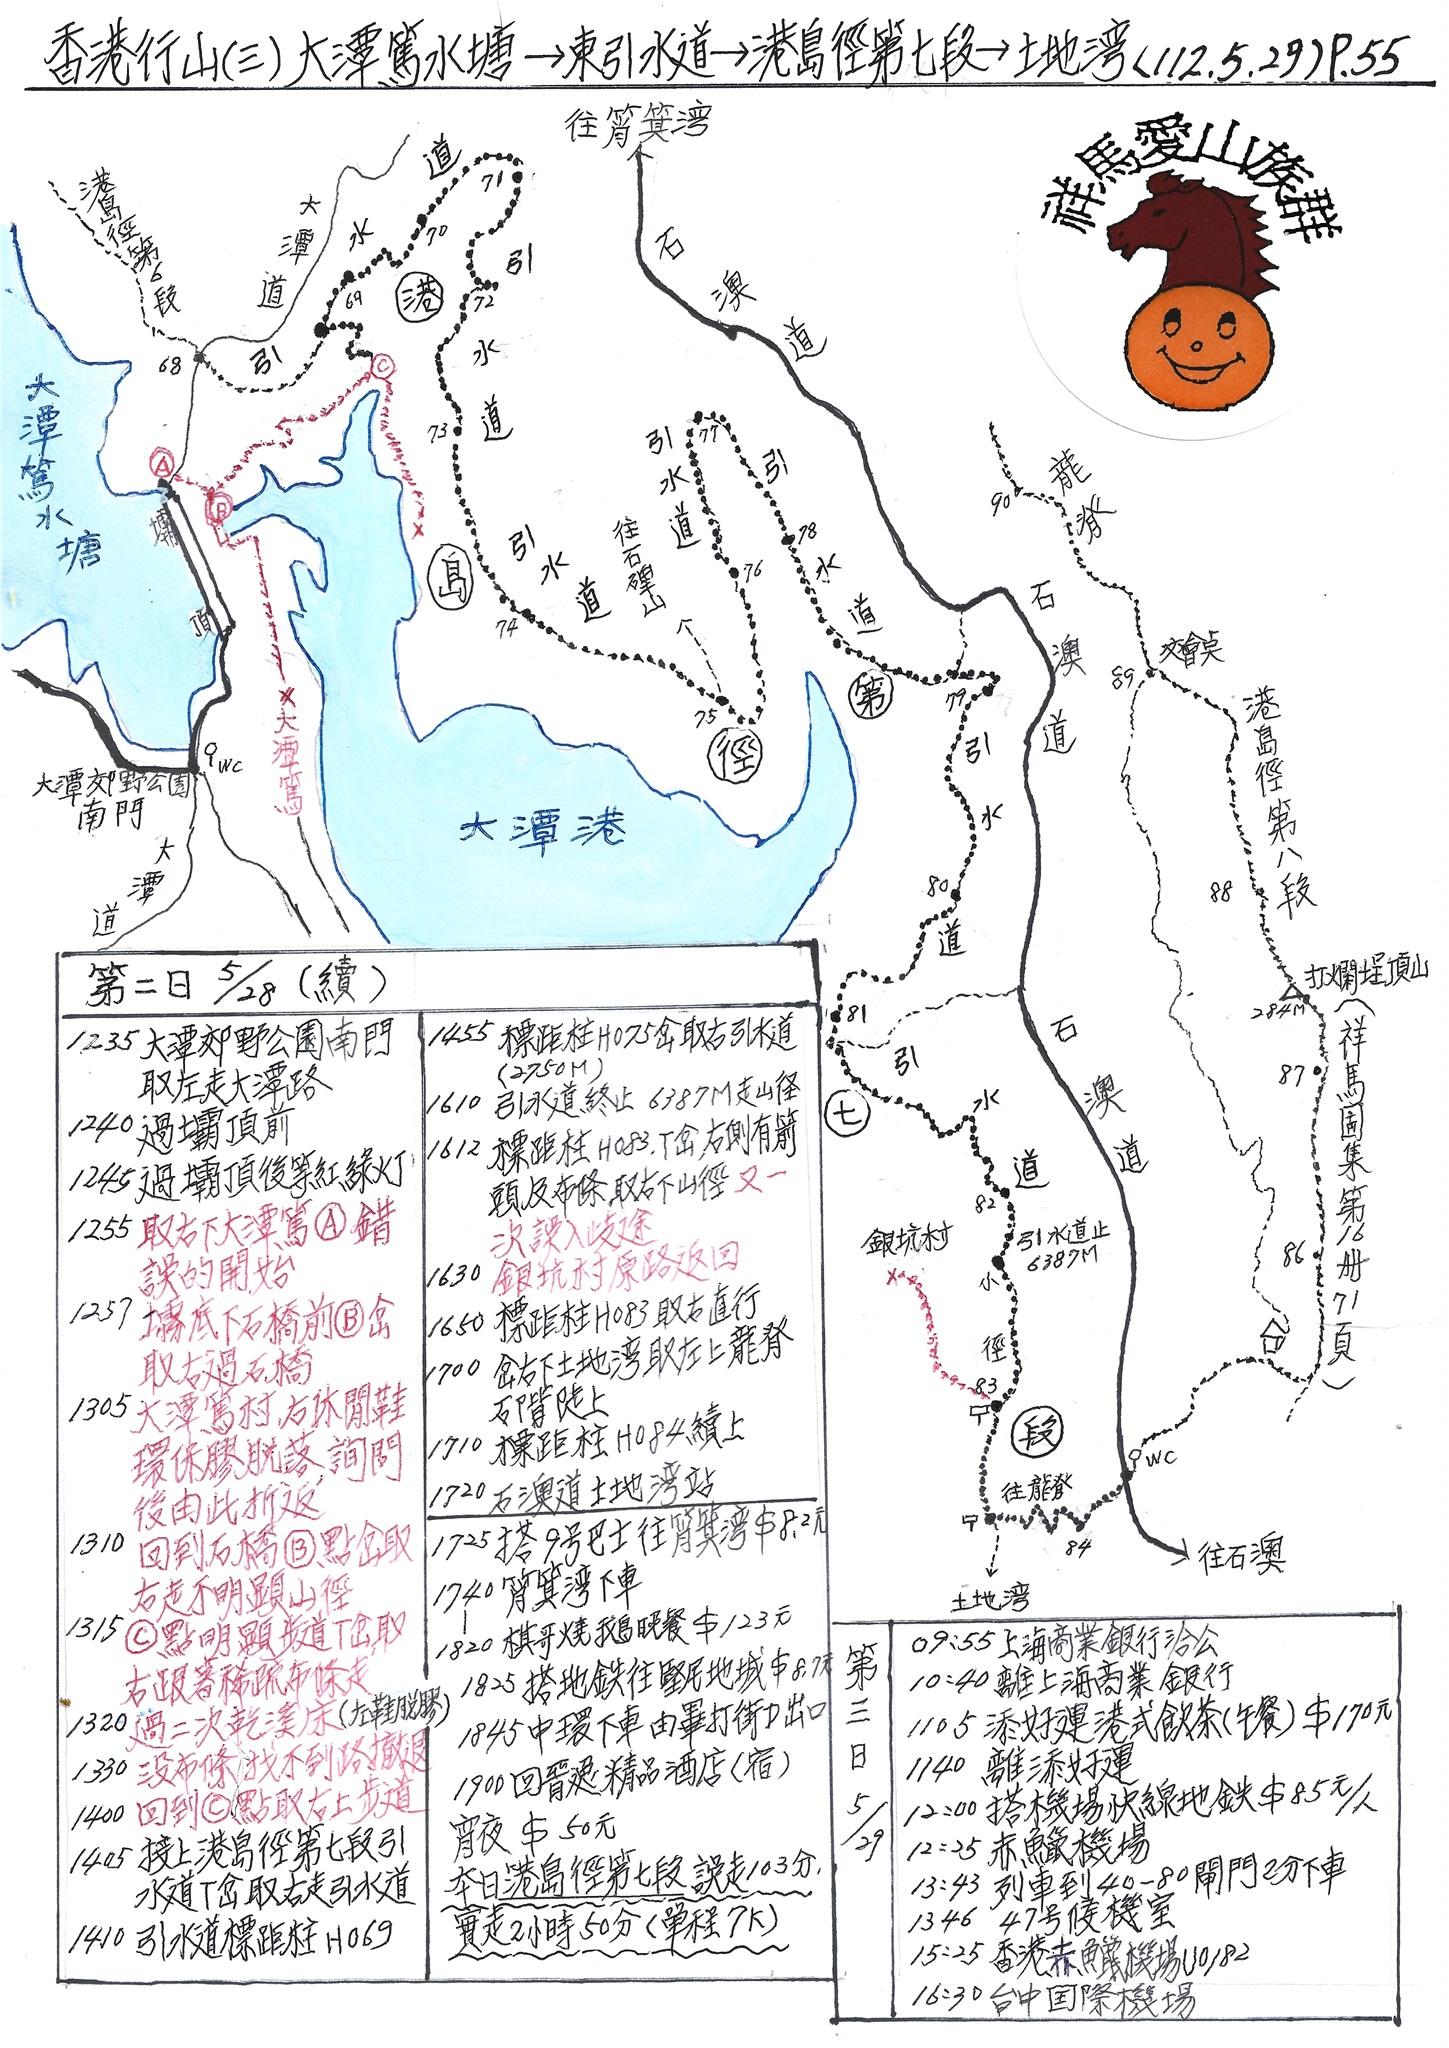 香港行山(三)大潭篤水塘→東引水道→港島徑第七段→土地湾(112.5.29)P.55
祥馬愛山族群
往筲箕湾
港島徑第6段
大潭道
引水道
68
69
70
71
72
港
石澳道
大潭篤水塘
引水道
73
A
B
C
壩頂
島
引水道
74
往石碑山
75
76
引水道
77
引水道
78
第
79
徑
大潭篤
WC
大潭郊野公園
南門
大潭道
大潭港
石澳道
引水道
80
81
七
引水道
82
引水道止
6387M
小徑
銀坑村
83
段
往龍脊
84
土地湾
石澳道
往石澳
WC
龍脊
90
交會点
89
港島徑第八段
88
打爛埕頂山
284M
87
86
(祥馬圖集第16册71頁)
第二日 5/28 (續)
1235 大潭郊野公園南門
取左走大潭路
1240 過壩頂前
1245 過壩頂後等紅綠灯
1255 取右下大潭篤Ⓐ錯
誤的開始
1257 壩底下石橋前Ⓑ岔
取右過石橋
1305 大潭篤村.右休閒鞋
環保膠脱落.詢問
後由此折返
1310 回到石橋Ⓑ點岔取
右走不明顯山徑
1315 Ⓒ點明顯步道T岔取
右跟著稀疏布條走
1320 過二次乾溪床(左鞋脱膠)
1330 没布條/找不到路撤退
1400 回到Ⓒ點取右上步道
1405 接上港島徑第七段引
水道T岔取右走引水道
1410 引水道標距柱H069
1455 標距柱H075岔取右引水道
(2750M)
1610 引水道終止 6387M走山径
1612 標距柱H083.T岔.右側有箭
頭及布條取右下山徑 又一
次誤入歧途
1630 銀坑村原路返回
1650 標距柱H083取右直行
1700 岔右下土地湾取左上龍脊
石階陡上
1710 標距柱H084續上
1720 石澳道土地湾站
1725 搭9号巴士往筲箕湾$8.2元
1740 筲箕湾下車
1820 棋哥燒鵝晚餐$123元
1825 搭地鉄往堅尼地城$8.7元
1845 中環下車由畢打街D出口
1900 回晉逸精品酒店(宿)
宵夜$50元
本日港島徑第七段誤走103分.
實走2小時50分(單程7K)
第三日 5/29
09:55 上海商業銀行洽公
10:40 離上海商業銀行
1105 添好運港式飲茶(午餐)$170元
1140 離添好運
12:00 搭機場快線地鉄$85元/人
12:25 赤鱲機場
13:43 列車到40-80閘門2分下車
1346 47号候機室
15:25 香港赤鱲機場UO182
16:30 台中国際機場